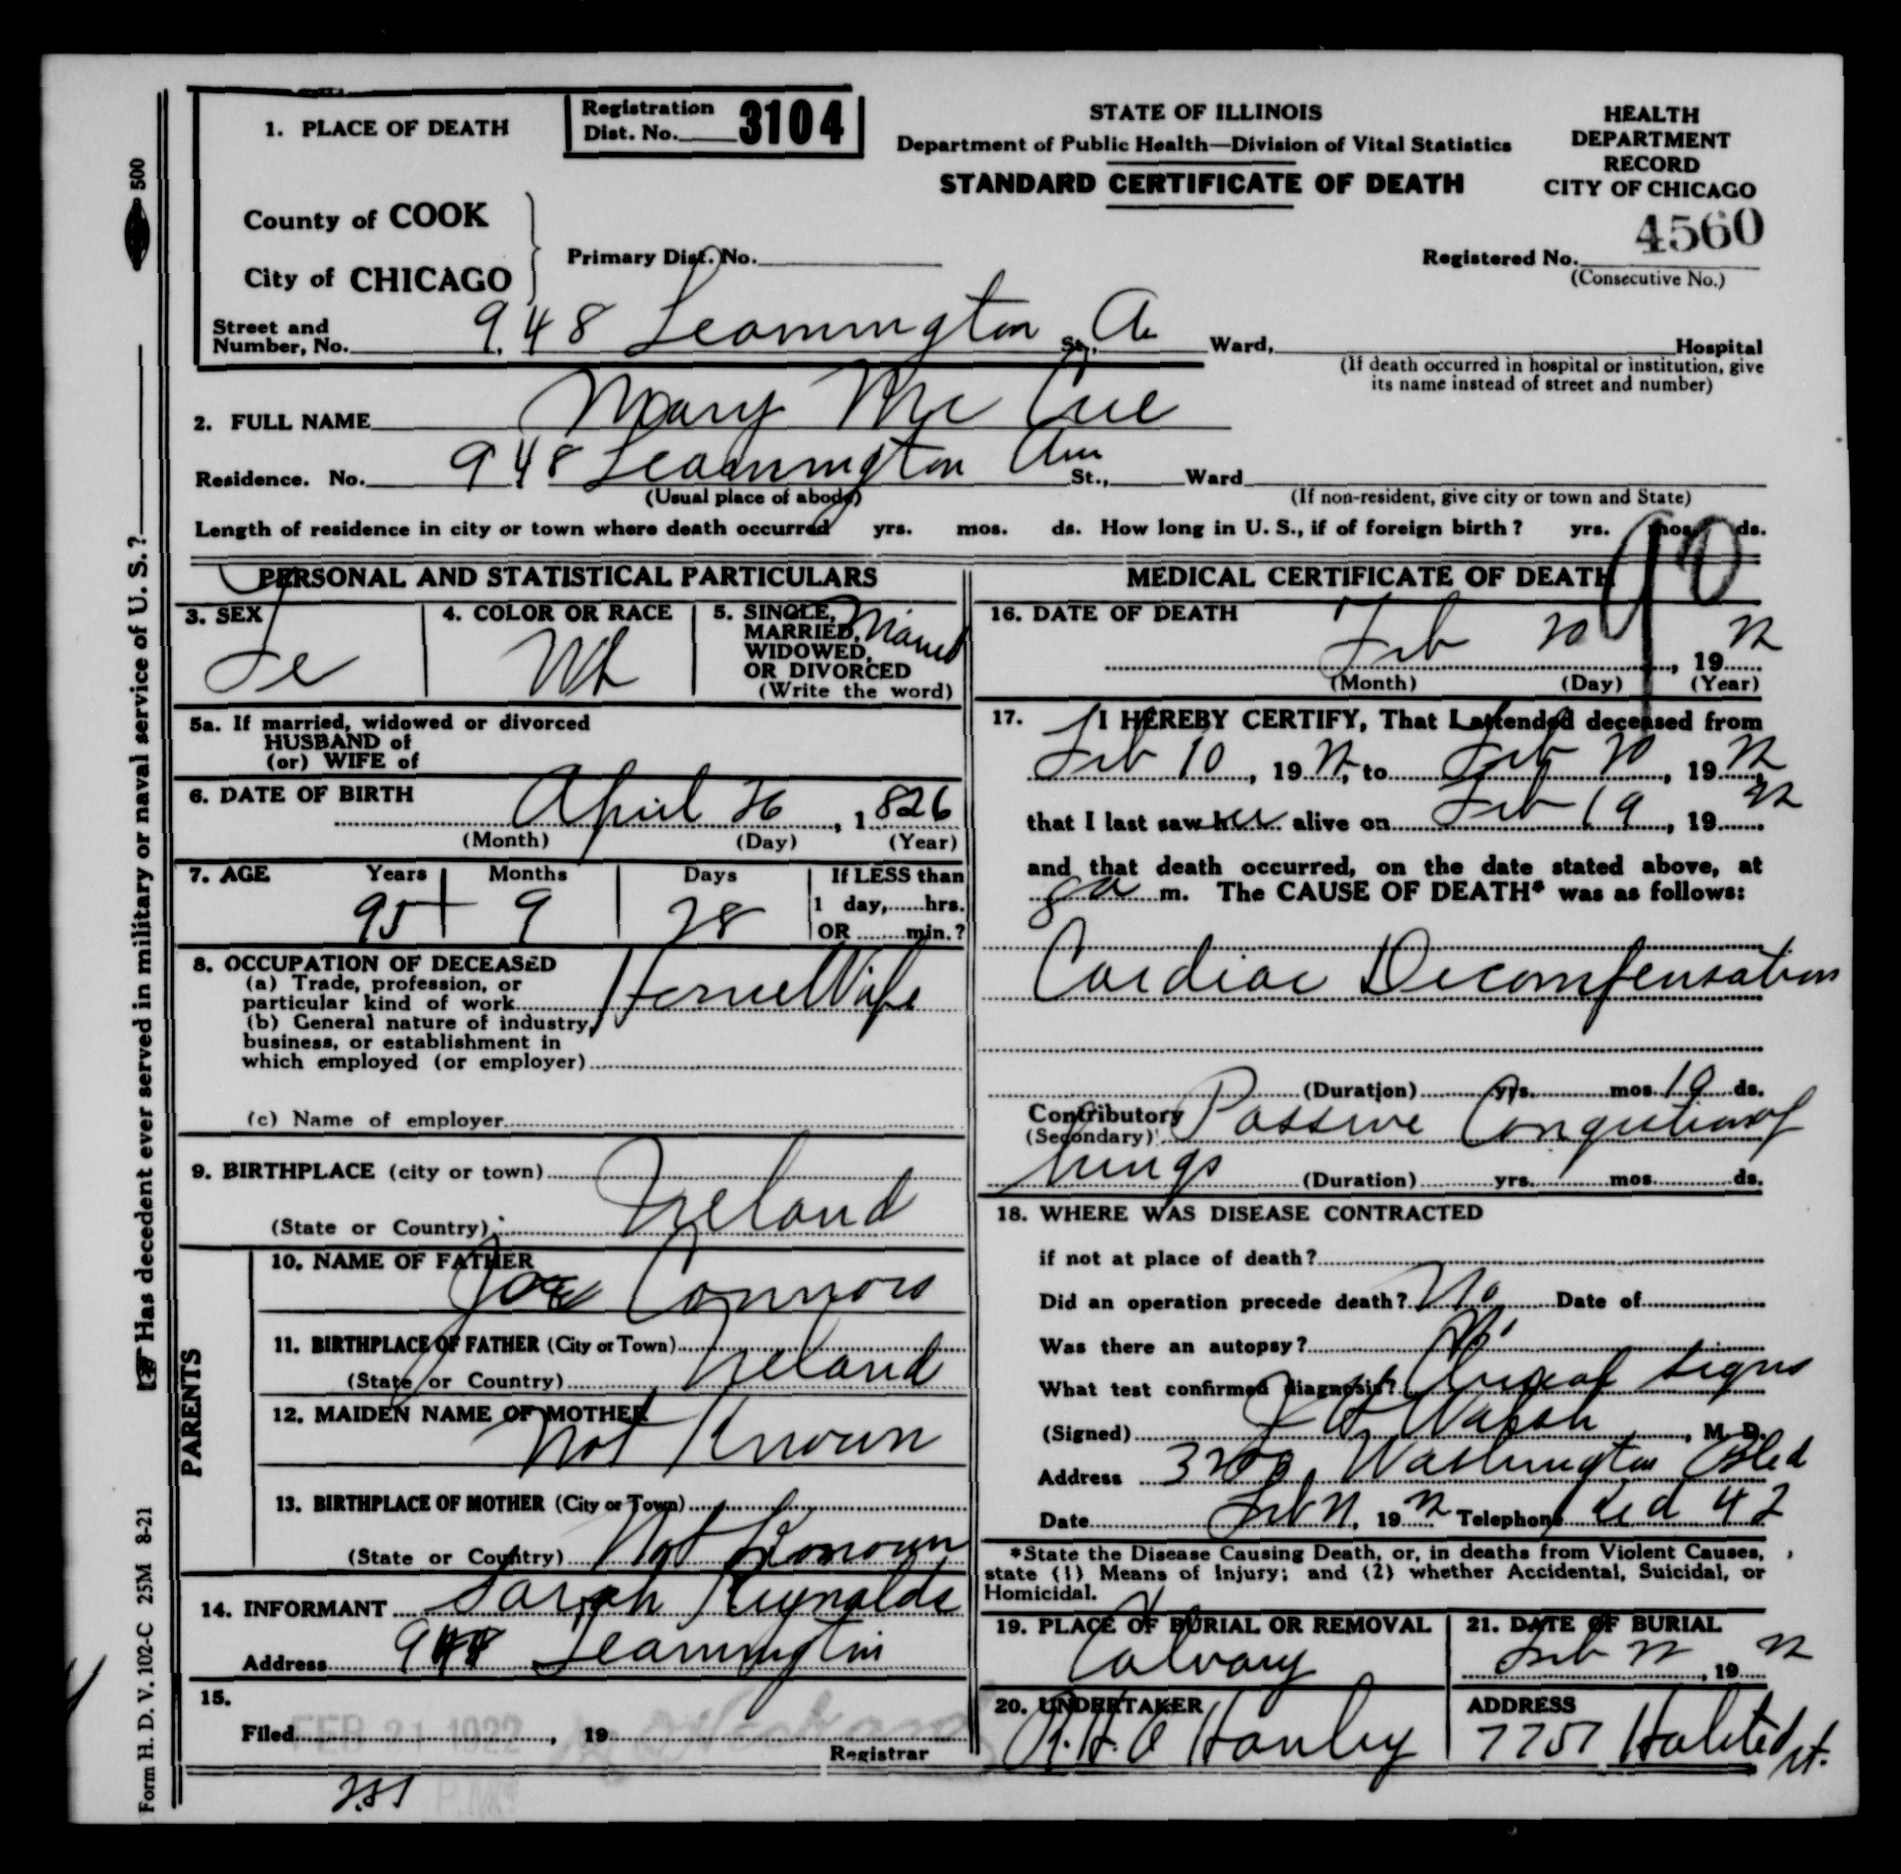 1. PLACE OF DEATH
Registration
Dist. No. 3104
STATE OF ILLINOIS
Department of Public Health—Division of Vital Statistics
STANDARD CERTIFICATE OF DEATH
HEALTH
DEPARTMENT
RECORD
CITY OF CHICAGO
County of COOK
City of CHICAGO
Primary Dist. No.
4560
Registered No.
(Consecutive No.)
Street and
Number, No. 948 Leamington St., Av Ward, Hospital
(If death occurred in hospital or institution, give
its name instead of street and number)
2. FULL NAME Mary Mc Cue
Residence. No. 948 Leamington Ave St., Ward
(Usual place of abode)
(If non-resident, give city or town and State)
Length of residence in city or town where death occurred yrs. mos. ds. How long in U. S., if of foreign birth? yrs. mos. ds.
90
PERSONAL AND STATISTICAL PARTICULARS
3. SEX
Fe
4. COLOR OR RACE
Wh
5. SINGLE,
MARRIED,
WIDOWED,
OR DIVORCED
(Write the word)
Married
5a. If married, widowed or divorced
HUSBAND of
(or) WIFE of
6. DATE OF BIRTH
April 26, 1826
(Month) (Day) (Year)
7. AGE Years Months Days If LESS than
95 9 28 1 day,......hrs.
OR ........min.?
8. OCCUPATION OF DECEASED
(a) Trade, profession, or
particular kind of work HouseWife
(b) General nature of industry,
business, or establishment in
which employed (or employer)
(c) Name of employer
9. BIRTHPLACE (city or town)
(State or Country) Ireland
PARENTS
10. NAME OF FATHER
Connors
11. BIRTHPLACE OF FATHER (City or Town)
(State or Country) Ireland
12. MAIDEN NAME OF MOTHER
Not Known
13. BIRTHPLACE OF MOTHER (City or Town)
(State or Country) Not Known
14. INFORMANT Sarah Reynolds
Address 948 Leamington
15.
Filed FEB 21 1922, 19
Registrar
MEDICAL CERTIFICATE OF DEATH
16. DATE OF DEATH
Feb 20, 1922
(Month) (Day) (Year)
17. I HEREBY CERTIFY, That I attended deceased from
Feb 10, 1922, to Feb 20, 1922
that I last saw her alive on Feb 19, 1922
and that death occurred, on the date stated above, at
8 a m. The CAUSE OF DEATH* was as follows:
Cardiac Decompensation
(Duration) yrs. mos. 10 ds.
Contributory Passive Congestion of
(Secondary)
lungs (Duration) yrs. mos. ds.
18. WHERE WAS DISEASE CONTRACTED
if not at place of death?
Did an operation precede death? No Date of
Was there an autopsy? No
What test confirmed diagnosis? Clinical signs
(Signed) J H Walsh, M. D.
Address 3200 Washington Blvd
Date Feb 21, 1922 Telephone
*State the Disease Causing Death, or, in deaths from Violent Causes,
state (1) Means of Injury; and (2) whether Accidental, Suicidal, or
Homicidal.
19. PLACE OF BURIAL OR REMOVAL
Calvary
21. DATE OF BURIAL
Feb 22, 1922
20. UNDERTAKER
Hanley
ADDRESS
7751 Halsted St.
500
☞ Has decedent ever served in military or naval service of U. S. ?
Form H. D. V. 102-C 25M 8-21